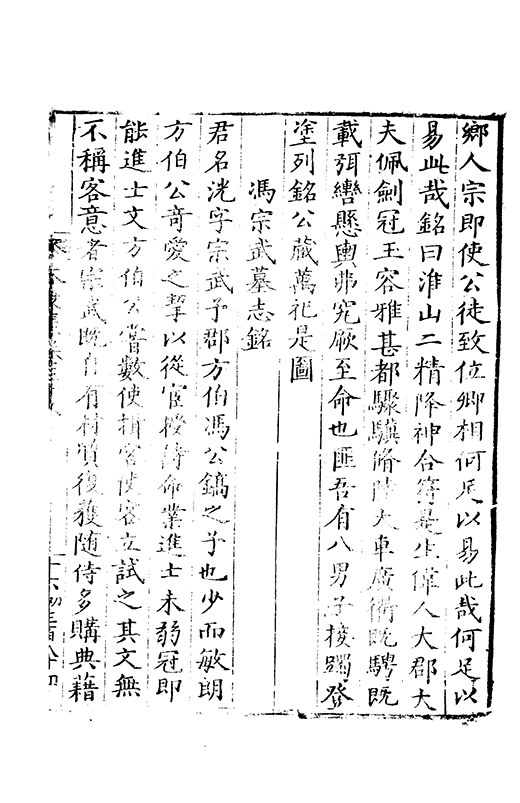 鄉人宗即使公徒致位卿相何足以易此哉何足以
易此哉銘曰淮山二精降神合符是生偉人大郡大
夫佩劍冠玉容雅甚都驟驥脩陸大車廣衢既騁既
載弭轡懸輿弗究厥至命也匪吾有八男子接躅登
塗列銘公藏萬祀是圖
馮宗武墓志銘
君名洸字宗武予郡方伯馮公鎬之子也少而敏朗
方伯公奇愛之挈以從宦授詩命業進士未弱冠即
能進士文方伯公嘗數使揖客使客立試之其文無
不稱客意者宗武既自有材質復獲隨侍多購典藉